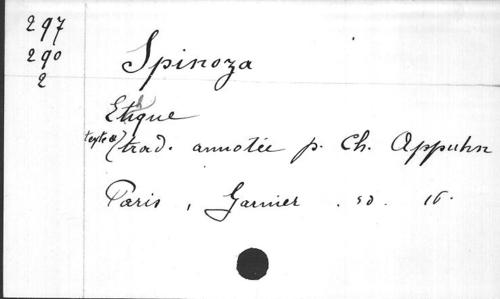 297
290
2
Spinoza
Ethique
texte et trad. annotée p. Ch. Appuhn
Paris, Garnier . sd . 16.